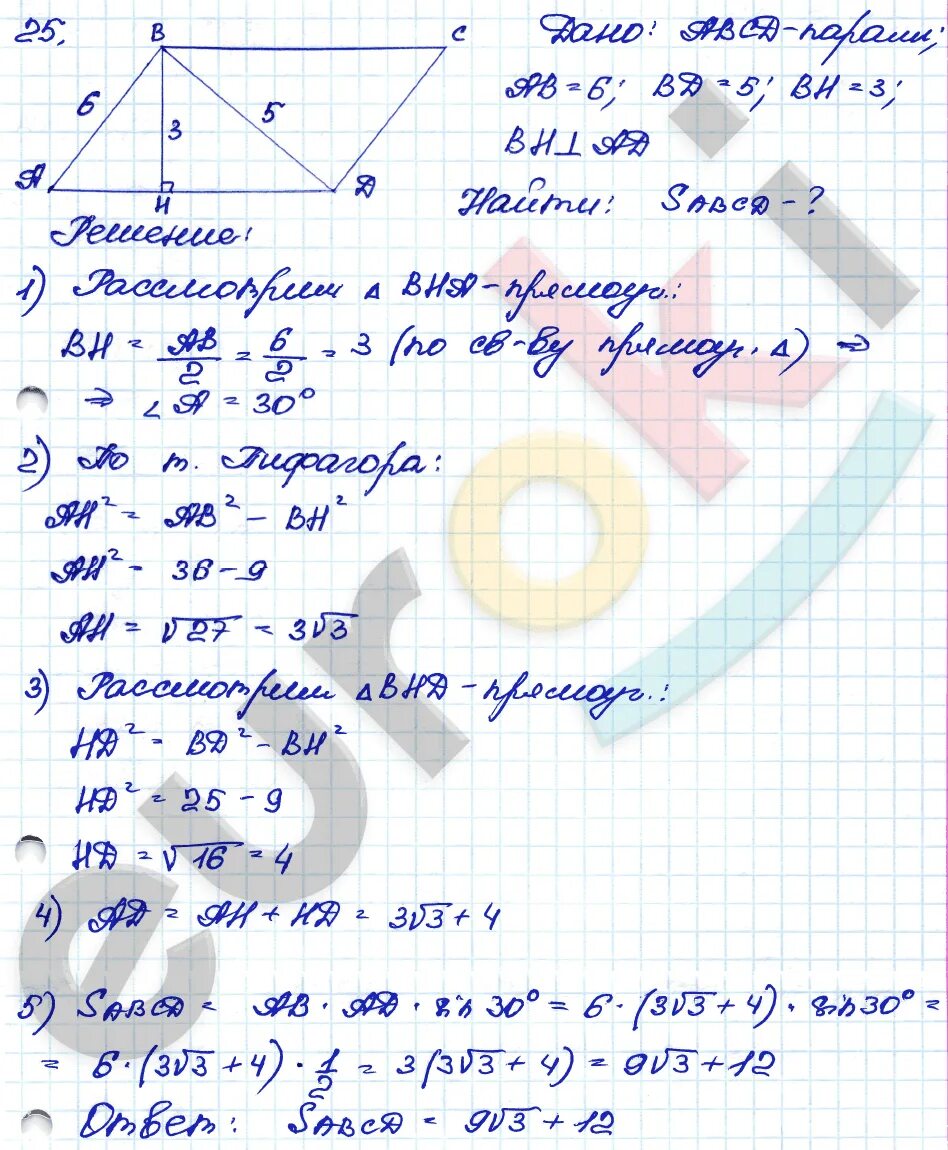 25.
B
C
A
D
H
6
3
5
Дано: ABCD-парал.;
AB = 6; BD = 5; BH = 3;
BH ⊥ AD
Найти: SABCD - ?
Решение:
1) Рассмотрим △ BHA - прямоуг.:
BH = AB/2 = 6/2 = 3 (по св-ву прямоуг. △) ⇒
⇒ ∠A = 30°
2) По т. Пифагора:
AH² = AB² - BH²
AH² = 36 - 9
AH = √27 = 3√3
3) Рассмотрим △BHD - прямоуг.:
HD² = BD² - BH²
HD² = 25 - 9
HD = √16 = 4
4) AD = AH + HD = 3√3 + 4
5) SABCD = AB · AD · sin 30° = 6 · (3√3 + 4) · sin 30° =
= 6 · (3√3 + 4) · 1/2 = 3 (3√3 + 4) = 9√3 + 12
Ответ: SABCD = 9√3 + 12
euroki